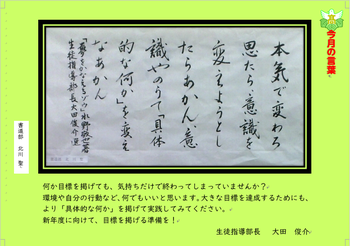 今月の言葉
本気で変わろ
思たら、意識を
変えようとし
たらあかん、意
識やのうて「具体
的な何か」を変え
なあかん
「夢をかなえるゾウ」水野敬也著
生徒指導部長大田俊介選
書道部　北川　聖
何か目標を掲げても、気持ちだけで終わってしまっていませんか？
環境や自分の行動など、何でもいいと思います。大きな目標を達成するためにも、
より「具体的な何か」を掲げて実践してみてください。
新年度に向けて、目標を掲げる準備を！
生徒指導部長　大田　俊介